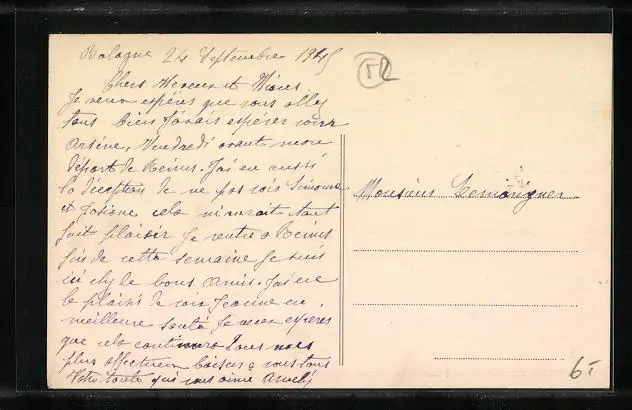 Balagne 24 Septembre 1945
Chers Neveux et Nièces
Je veux espérer que vous allez
tous bien J'avais espérer voir
Arsène, Vendredi avant mon
départ de Reims. J'ai eu aussi
la déception de ne pas voir Simone
et Josiane cela m'aurait tant
fait plaisir Je rentre a Reims
fin de cette semaine Je suis
ici chez le bons Amis. J'ai eu
le plaisir de voir Jeanne en
meilleure santé Je veux espérer
que cela continuera Tous mes
plus affectueux baisers a vous tous
Votre tante qui vous aime
Monsieur Lemoigner
6-